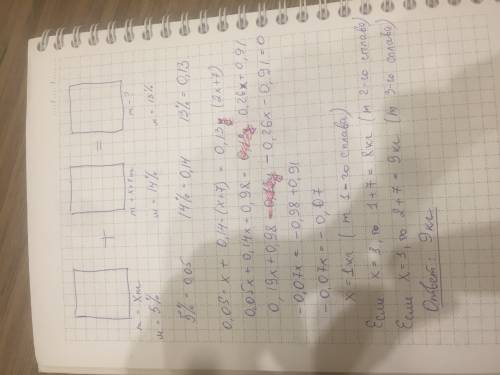 + =
m = x кг m = x+7кг m - ?
м = 5% м = 14% м = 13%
5% = 0,05 14% = 0,14 13% = 0,13
0,05·x + 0,14·(x+7) = 0,13 (2x+7)
0,05x + 0,14x + 0,98 = 0,26x + 0,91
0,19x + 0,98 - 0,26x - 0,91 = 0
-0,07x = -0,98 + 0,91
-0,07x = -0,07
x = 1кг (m 1-го сплава)
Если x = 1, то 1+7 = 8кг (m 2-го сплава)
Если x = 1, то 2+7 = 9кг (m 3-го сплава)
Ответ: 9кг